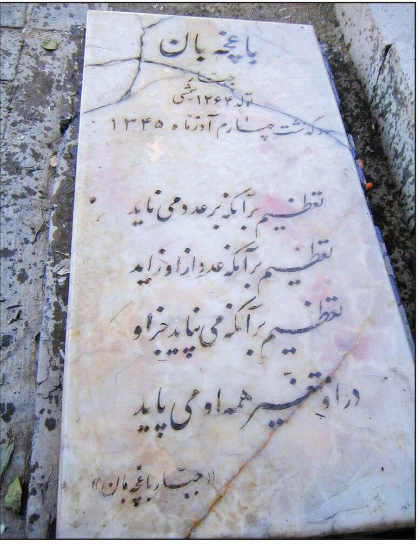 باغچه بان
جبار
تولد ۱۲۶۴ شمسی
درگذشت چهارم آذرماه ۱۳۴۵
تعظیم بر آنکه بر عدد می ناید
تعظیم بر آنکه عدد از او زاید
تعظیم بر آنکه می نپاید جز او
در او تغییر همه او می پاید
«جبار باغچه بان»